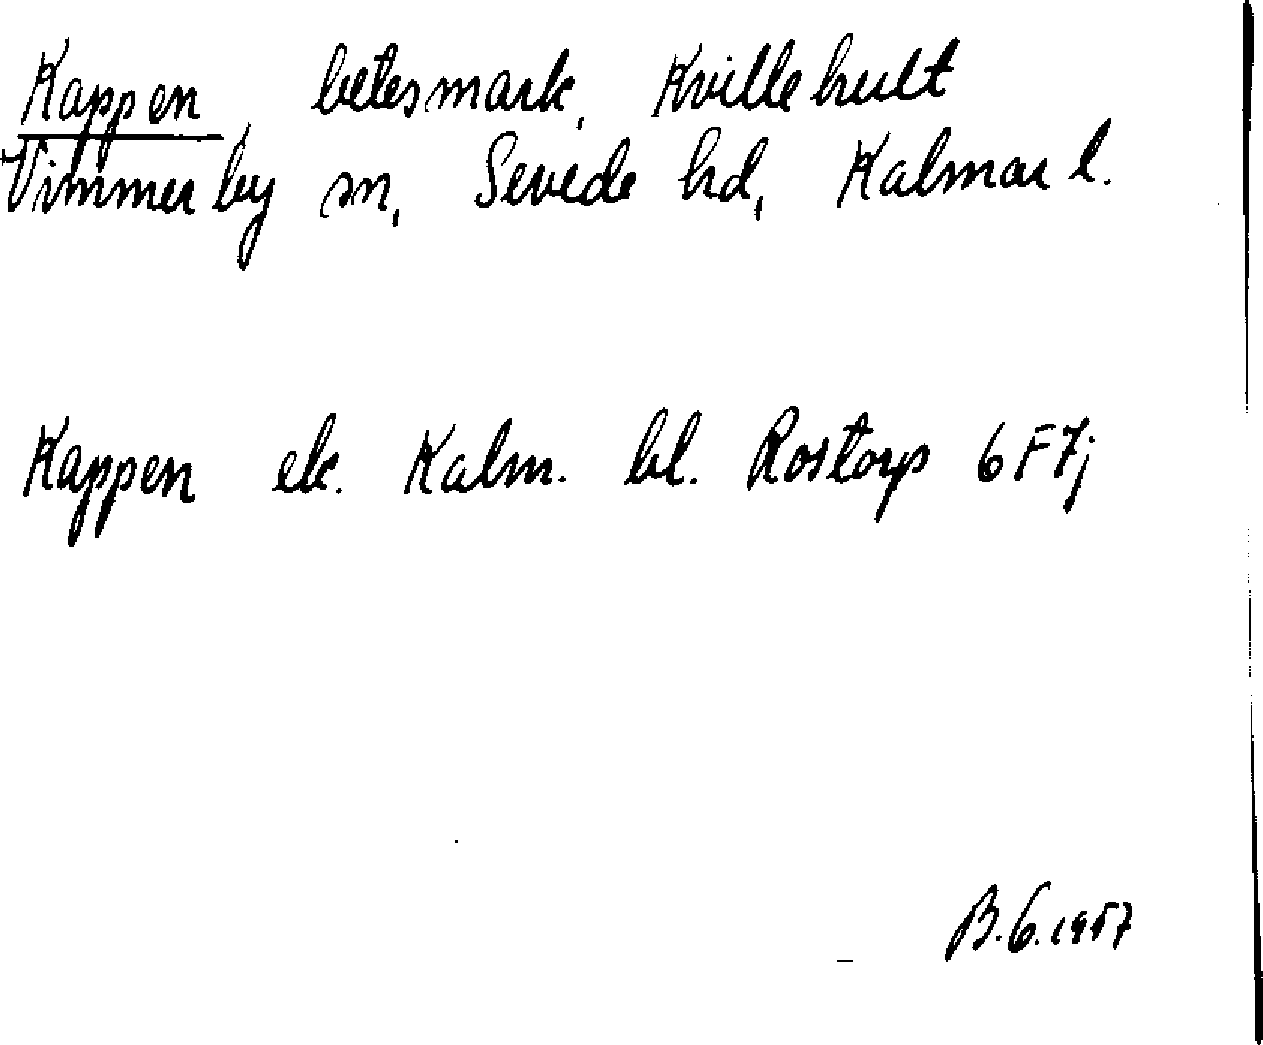 Kappen betesmark, Kvillehult
Vimmerby sn, Sevede hd, Kalmar l.
Kappen ek. Kalm. bl. Rostorp 6F7j
B.G. 1957